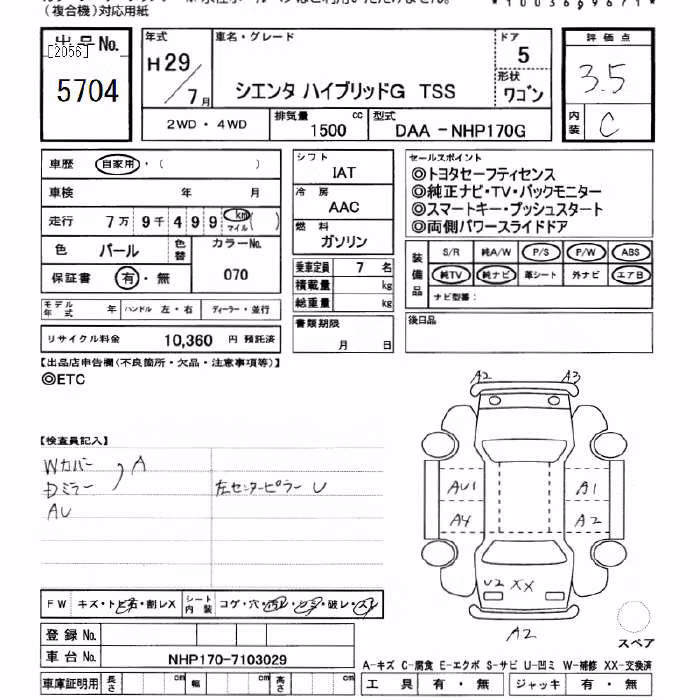 (複合機)対応用紙
*1003696671*
出品No.
[2056]
5704
年式
H29/7月
車名・グレード
シエンタ ハイブリッドG TSS
ドア
5
形状
ワゴン
評価点
3.5
内装
C
2WD・4WD
排気量
1500 cc
型式
DAA-NHP170G
車歴 自家用・( )
車検 年 月
走行 7万 9千 4 9 9 km マイル ( )
色 パール 色替 カラーNo.
保証書 有・無 070
モデル年式 年 ハンドル 左・右 ディーラー・並行
リサイクル料金 10,360 円 預託済
シフト
IAT
冷房
AAC
燃料
ガソリン
乗車定員 7 名
積載量 kg
総重量 kg
書類期限
月 日
セールスポイント
◎トヨタセーフティセンス
◎純正ナビ・TV・バックモニター
◎スマートキー・プッシュスタート
◎両側パワースライドドア
装備品
S/R 純A/W P/S P/W ABS
純TV 純ナビ 革シート 外ナビ エアB
ナビ型番:
後日品
【出品店申告欄(不良箇所・欠品・注意事項等)】
◎ETC
【検査員記入】
Wカバー
Dミラー , A
AU
左センターピラー U
A2 A3
AU1 A1
A4 A2
U2 XX
A2
スペア
FW キズ・トビ石・割レX シート内装 コゲ・穴・汚レ・シミ・破レ・スレ
登録No.
車台No. NHP170-7103029
車庫証明用 長さ cm 幅 cm 高さ cm
A-キズ C-腐食 E-エクボ S-サビ U-凹ミ W-補修 XX-交換済
工具 有・無 ジャッキ 有・無